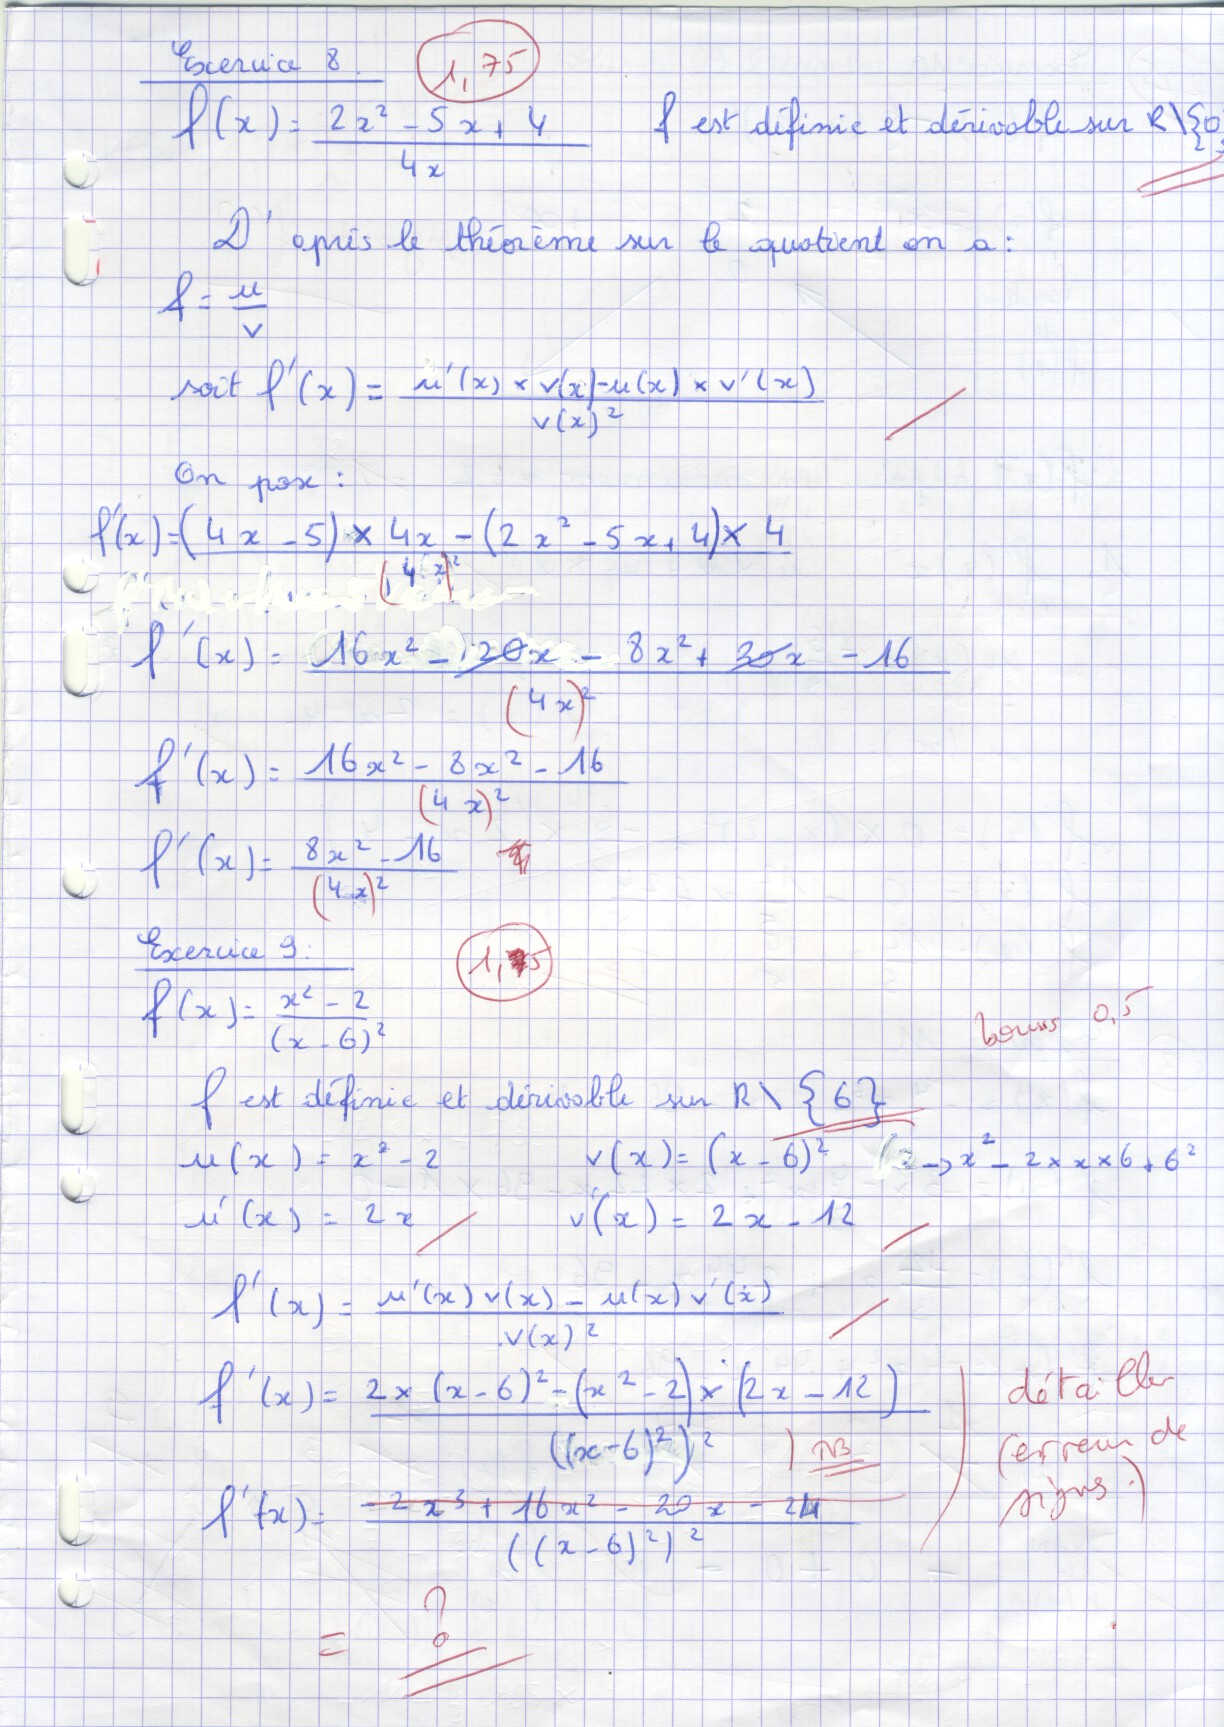 Exercice 8. 1,75
f(x) = 2x² - 5x + 4 / 4x f est définie et dérivable sur R\{0}
D'après le théorème sur le quotient on a :
f = u / v
soit f'(x) = u'(x) × v(x) - u(x) × v'(x) / v(x)²
On pose :
f'(x) = (4x - 5) × 4x - (2x² - 5x + 4) × 4 / (4x)²
f'(x) = 16x² - 20x - 8x² + 20x - 16 / (4x)²
f'(x) = 16x² - 8x² - 16 / (4x)²
f'(x) = 8x² - 16 / (4x)²
Exercice 9 : 1,75
f(x) = x² - 2 / (x - 6)²
bonus 0,5
f est définie et dérivable sur R\{6}
u(x) = x² - 2 v(x) = (x - 6)² → x² - 2 × x × 6 + 6²
u'(x) = 2x v'(x) = 2x - 12
f'(x) = u'(x) v(x) - u(x) v'(x) / v(x)²
f'(x) = 2 × (x - 6)² - (x² - 2) × (2x - 12) / ((x - 6)²)² détailler
NB (erreur de
signs.)
f'(x) = -2x³ + 16x² - 20x - 24 / ((x - 6)²)²
= ?